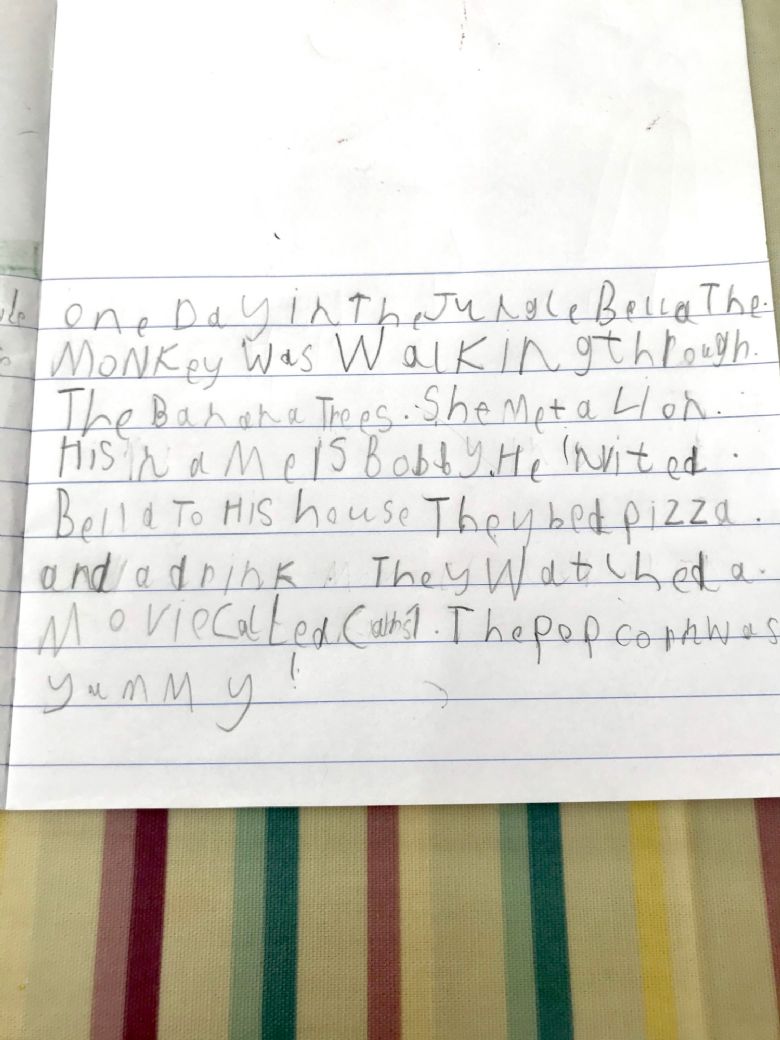 One Day in The Jungle Bella The.
MONKey Was WalKINg through.
The Banana Trees. She Met a LIon.
HIS in a Me IS Bobby. He invited.
Bella To HIS house They hed pizza.
and a drinK. They Watched a.
MoVie Called Cars1. The popcorn was
yummy!